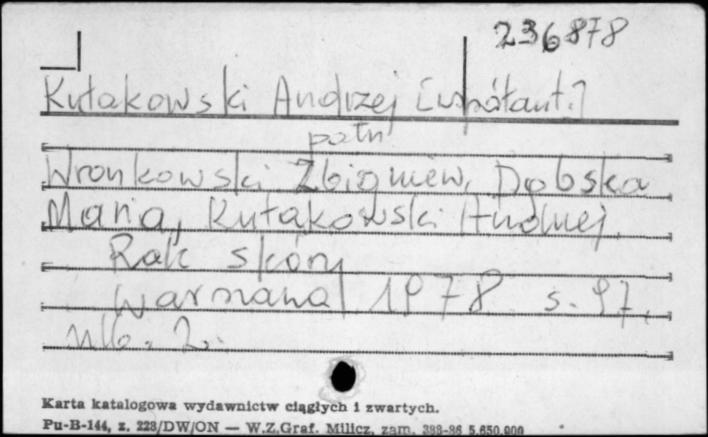 236878
Kułakowski Andrzej [współaut.]
patrz
Wronkowski Zbigniew, Dębska
Maria, Kułakowski Andrzej
Rak skóry
Warszawa 1978 s. 97,
nlb. 2.
Karta katalogowa wydawnictw ciągłych i zwartych.
Pu-B-144, z. 228/DW/ON — W.Z.Graf. Milicz, zam. 388-86 5.650.000